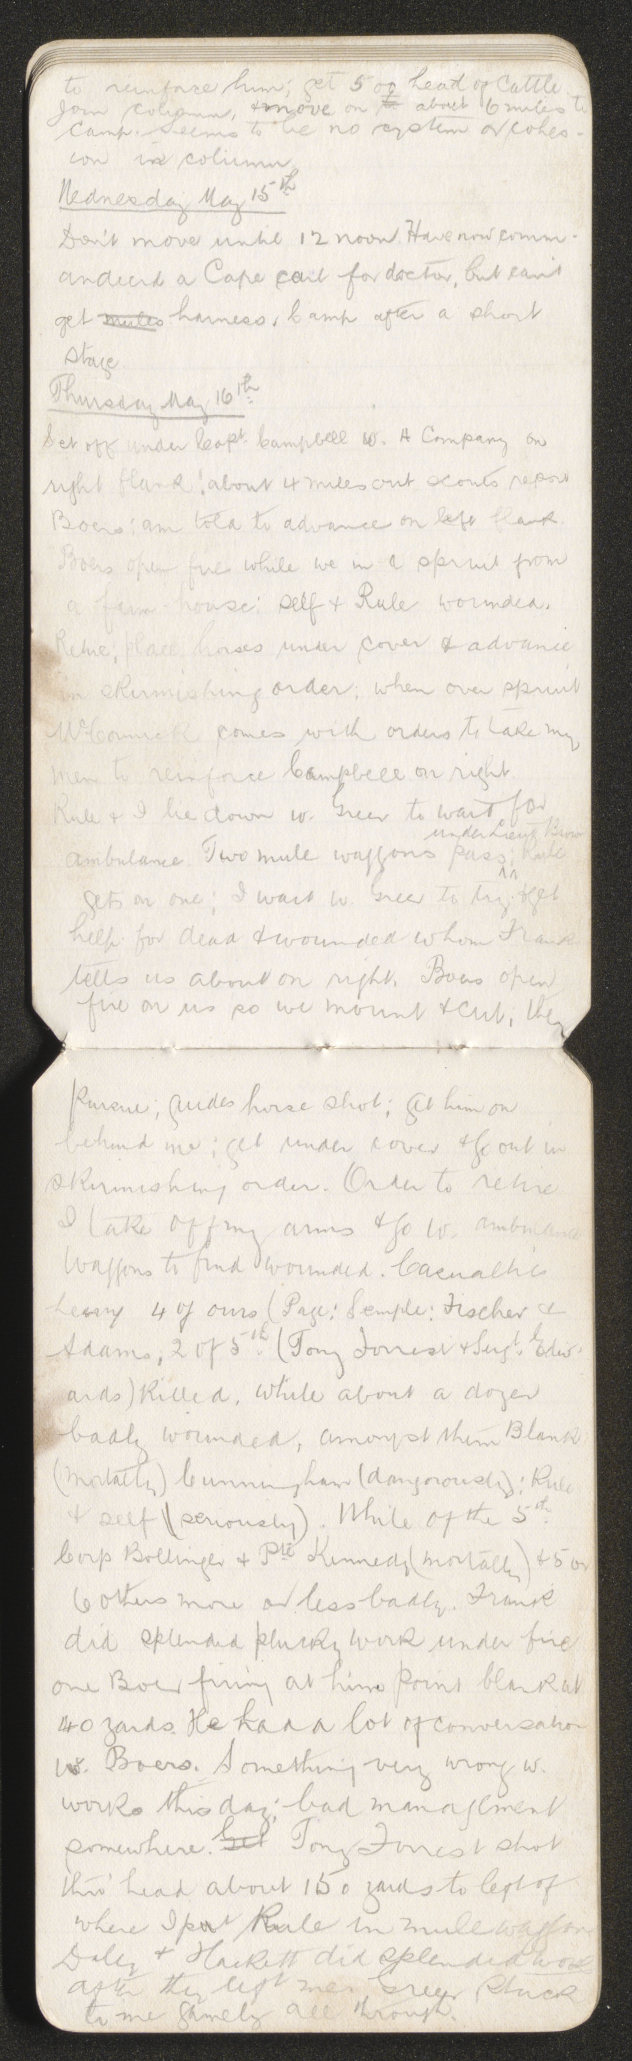 to reinforce him; get 500 head of Cattle.
Join column, & move on to about 6 miles to
camp. Seems to be no system or cohes-
ion in column
Wednesday May 15th
Don't move until 12 noon. Have now comm-
andeered a Cape cart for doctor, but can't
get mules harness. Camp after a short
stage.
Thursday May 16th
Set off under Capt. Campbell w. A Company on
right flank; about 4 miles out scouts report
Boers; am told to advance on left flank.
Boers open fire while we in a spruit from
a farm-house; self & Rule wounded.
Retire, place horses under cover & advance
in skirmishing order; when over spruit
McCormick comes with orders to take my
men to reinforce Campbell on right.
Rule & I lie down w. Greer to wait for
under Lieut Brown
ambulance. Two mule waggons pass, Rule
gets on one; I wait w. Greer to try & get
help for dead & wounded whom Frank
tells us about on right. Boers open
fire on us so we mount & cut, they
pursue; guides horse shot; get him on
behind me; get under cover & go out in
skirmishing order. Order to retire
I take off my arms & go w. ambulance
Waggons to find wounded. Casualties
heavy 4 of ours (Page; Semple; Fischer &
Adams, 2 of 5th (Tony Forrest & Sergt. Edw-
ards) killed, while about a dozen
badly wounded, amongst them Blank
(mortally) Cunningham (dangerously); Rule
& self (seriously). While of the 5th
Corp Bollinger & Pte Kennedy (mortally) & 5 or
6 others more or less badly. Frank
did splendid plucky work under fire
one Boer firing at him point blank at
40 yards. He had a lot of conversation
w. Boers. Something very wrong w.
works this day; bad management
somewhere. Get Tony Forrest shot
thro' head about 150 yards to left of
where I put Rule in mule waggon
Daley & Hackett did splendid work
after they left me. Greer stuck
to me gamely all through.